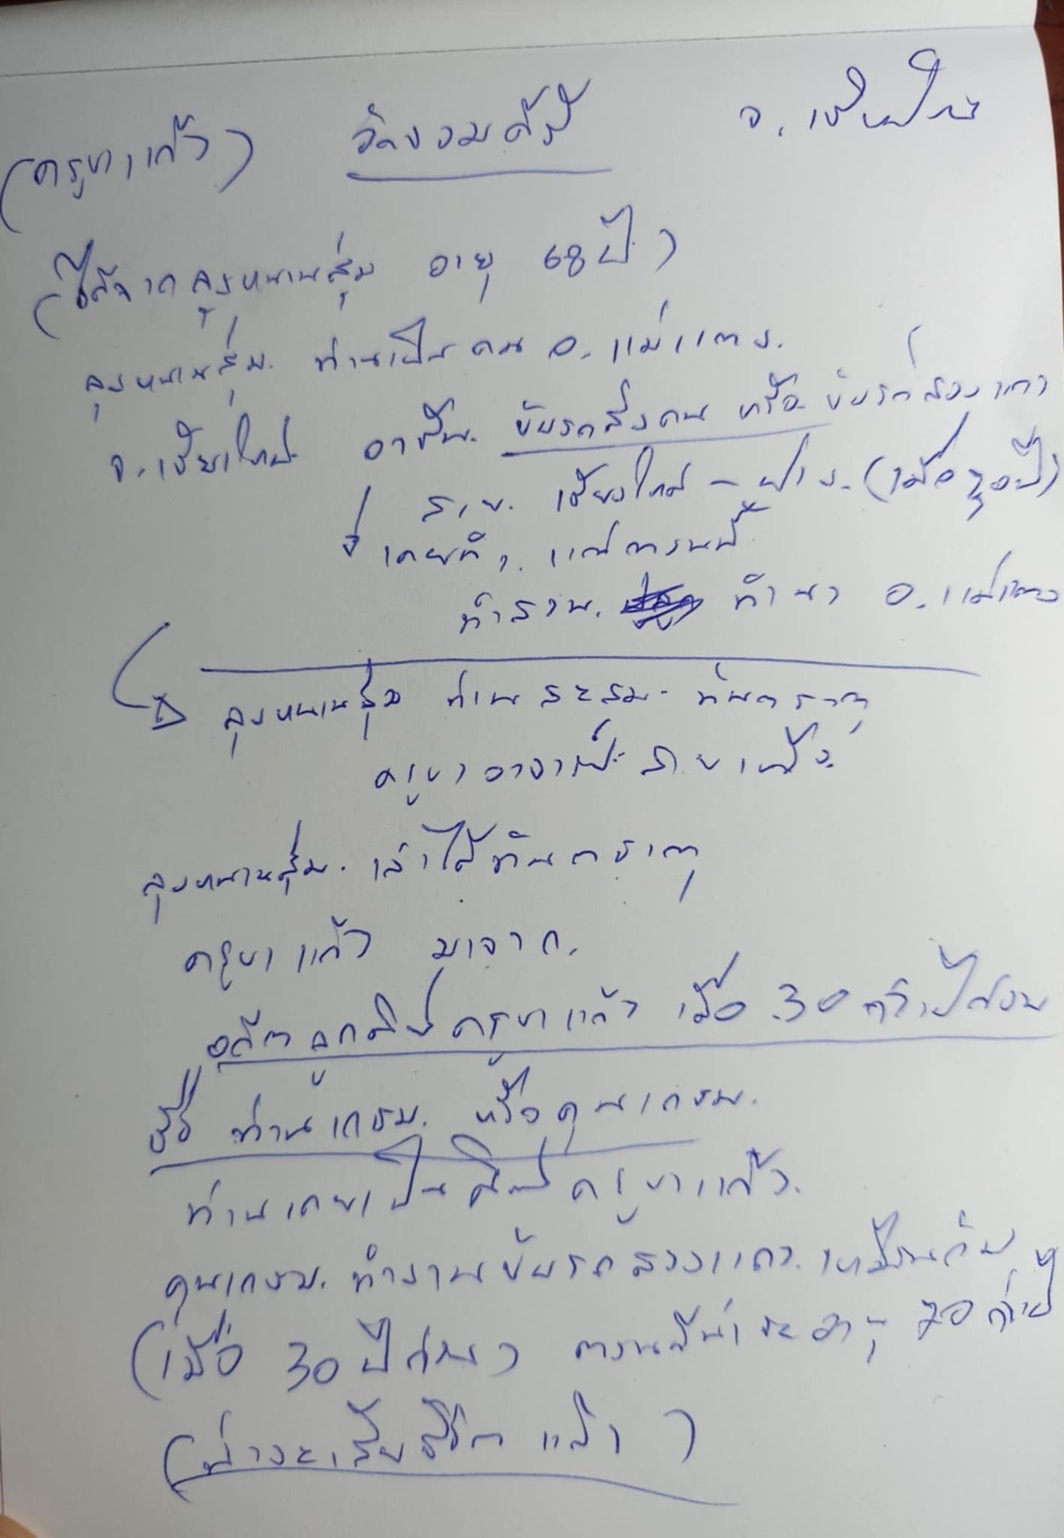 (ครูบาแก้ว) วัดจอมคีรี จ.เชียงใหม่
(ได้จากลุงหนานสุ่ม อายุ 68 ปี)
ลุงหนานสุ่ม. ท่านเป็นคน อ.แม่แตง.
จ.เชียงใหม่ อาชีพ. ขับรถส่งคน หรือ ขับรถสองแถว
สาย. เชียงใหม่ - ฝาง. (เมื่อ 30 ปี)
เคยทำ, แต่ตอนนี้
ทำสวน. ทำนา อ.แม่แตง
ลุงหนานสุ่ม ท่านสะสม ทันตธาตุ
ครูบาอาจารย์สายเหนือ
ลุงหนานสุ่ม. เล่าได้ทันตธาตุ
ครูบาแก้ว มาจาก.
อดีตลูกศิษย์ครูบาแก้ว เมื่อ 30 กว่าปีก่อน
ชื่อ ท่านเกษม. หรือคุณเกษม.
ท่านเคยเป็นศิษย์ครูบาแก้ว.
คุณเกษม. ทำงานขับรถสองแถว. เหมือนกัน
(เมื่อ 30 ปีก่อน) ตอนนี้น่าจะอายุ 70 กว่าปี
(น่าจะเสียชีวิตแล้ว)